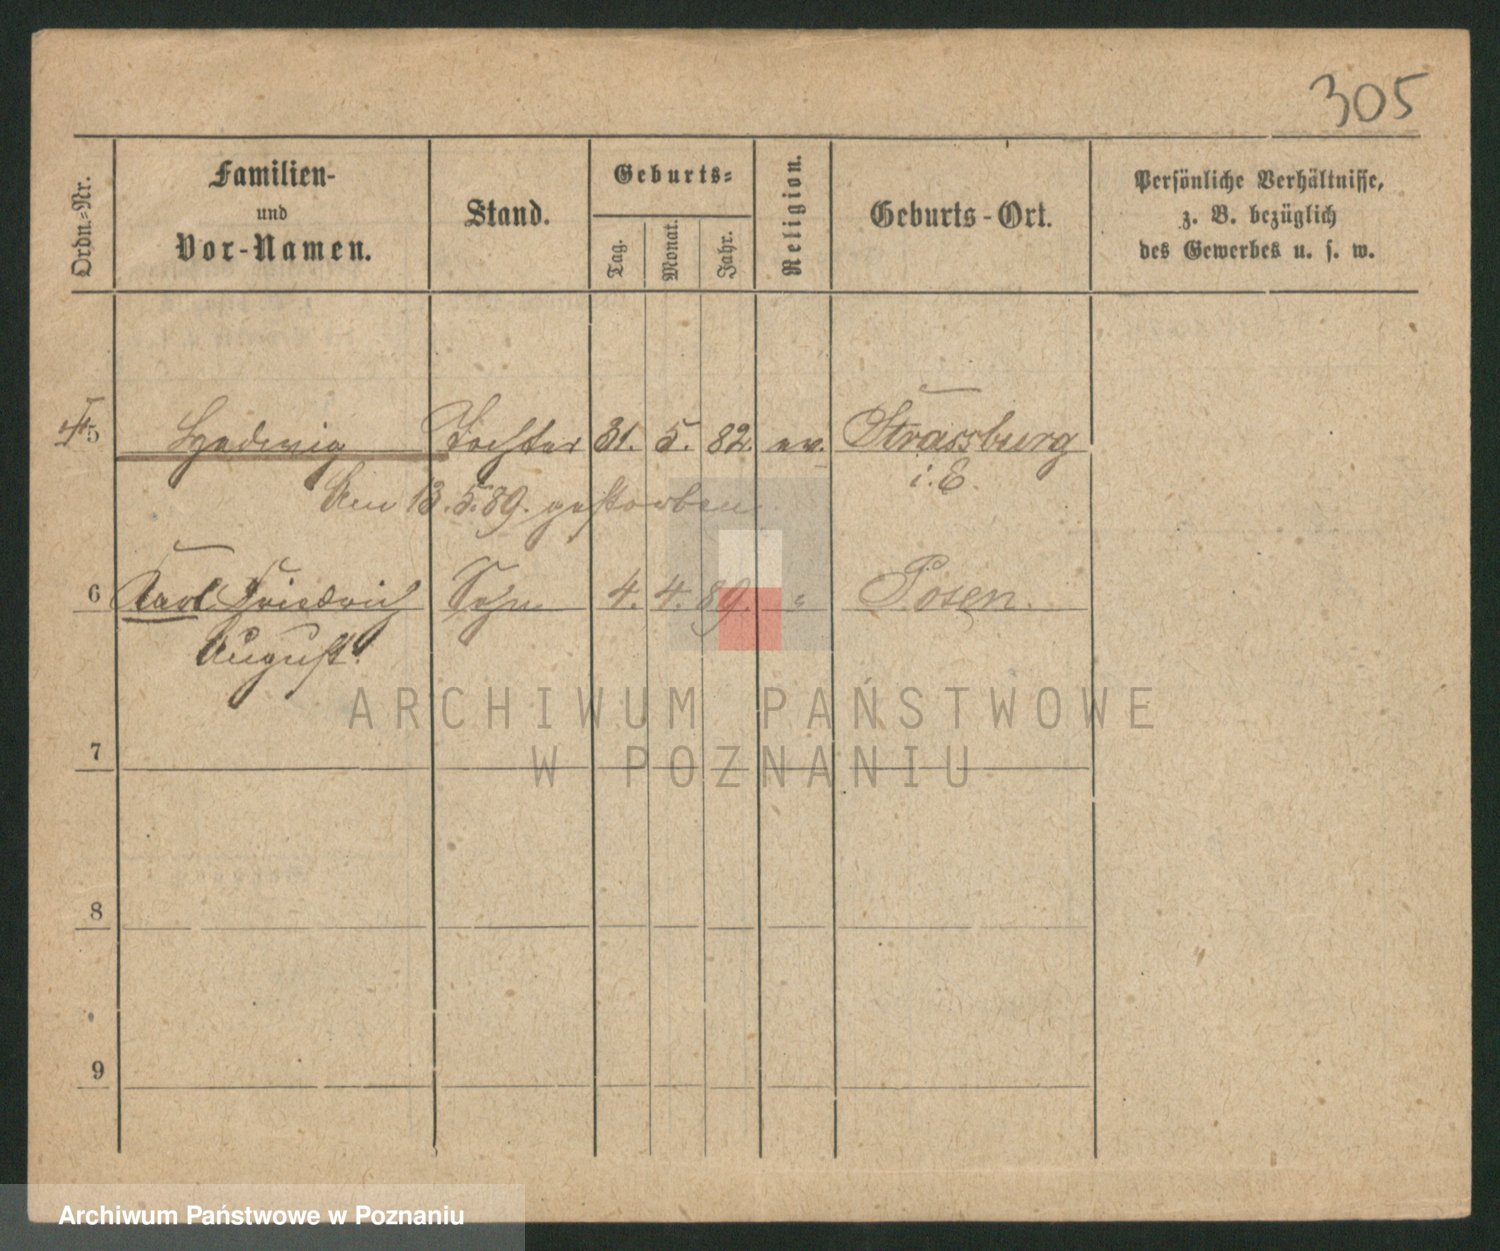 305
Ordn.=Nr.
Familien-
und
Vor-Namen.
Stand.
Geburts=
Tag.
Monat.
Jahr.
Religion.
Geburts-Ort.
Persönliche Verhältnisse,
z. B. bezüglich
des Gewerbes u. s. w.
5 Hedwig Tochter 31. 5. 82. ev. Strassburg
i. E.
Am 13. 5. 89. gestorben.
6 Karl Friedrich Sohn 4. 4. 89. " Posen.
August.
7
8
9
ARCHIWUM PAŃSTWOWE
W POZNANIU
Archiwum Państwowe w Poznaniu